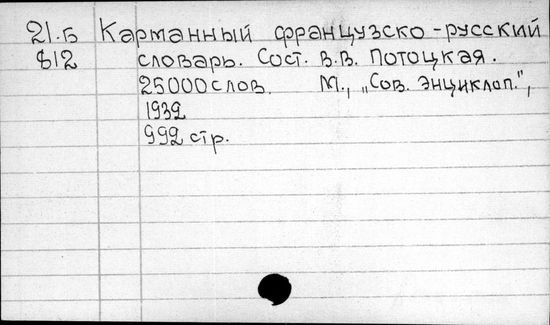 21.Б Карманный французско-русский
812 словарь. Сост. В.В. Потоцкая.
25000 слов. М., „Сов. энциклоп.",
1939
992 стр.